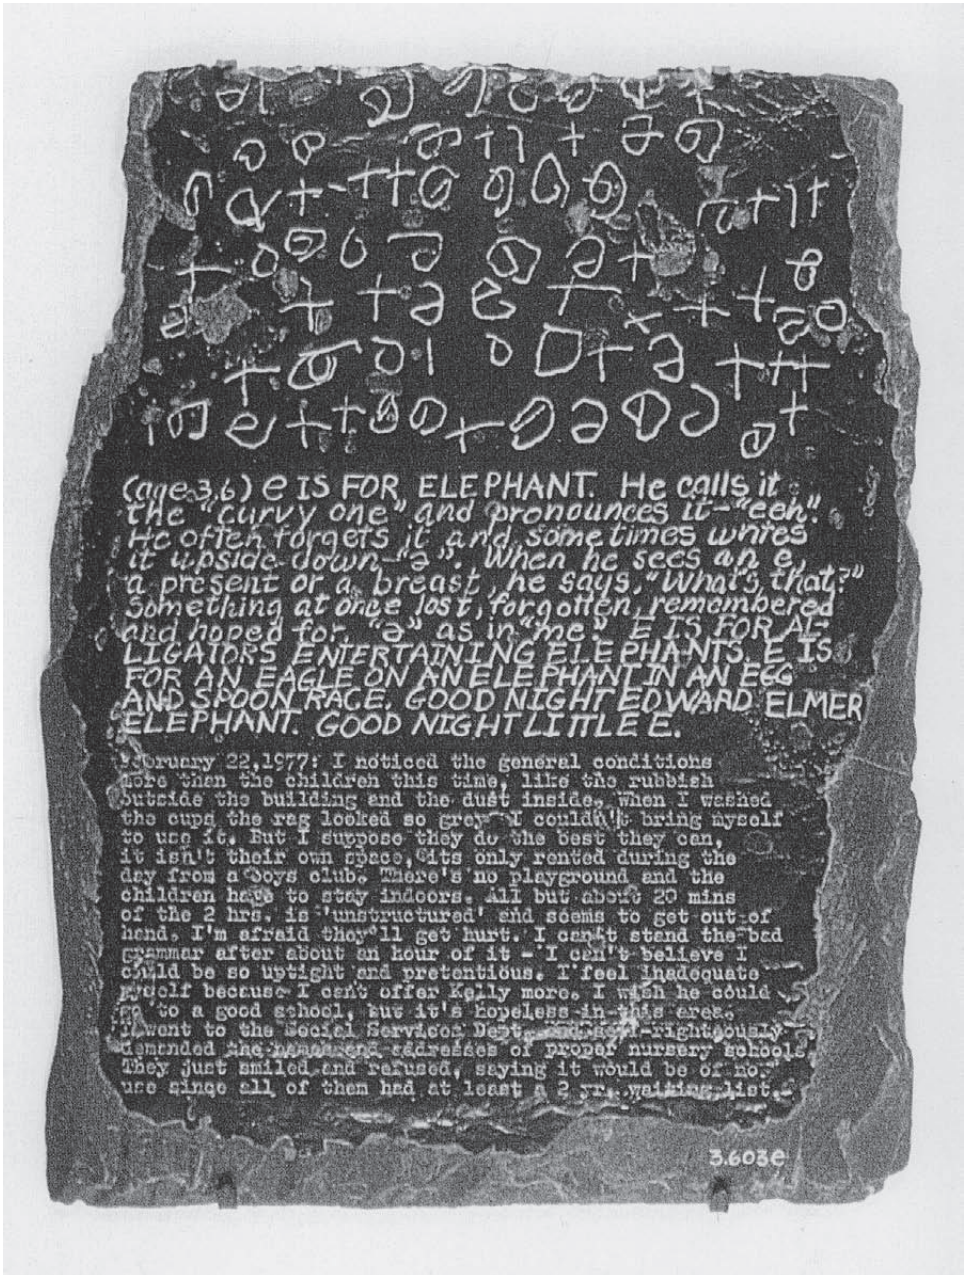 (age 3.6) e IS FOR ELEPHANT. He calls it
the "curvy one" and pronounces it-"eeh".
He often forgets it and sometimes writes
it upside-down-"ə". When he sees an e,
a present or a breast, he says, "What's that?"
Something at once lost, forgotten, remembered
and hoped for, "ə" as in "me." E IS FOR AL-
LIGATORS ENTERTAINING ELEPHANTS. E IS
FOR AN EAGLE ON AN ELEPHANT IN AN EGG
AND SPOON RACE. GOOD NIGHT EDWARD ELMER
ELEPHANT. GOOD NIGHT LITTLE E.
February 22,1977: I noticed the general conditions
more than the children this time, like the rubbish
outside the building and the dust inside. When I washed
the cups the rag looked so grey I couldn't bring myself
to use it. But I suppose they do the best they can,
it isn't their own space, its only rented during the
day from a boys club. There's no playground and the
children have to stay indoors. All but about 20 mins
of the 2 hrs. is 'unstructured' and seems to get out of
hand. I'm afraid they'll get hurt. I can't stand the bad
grammar after about an hour of it - I can't believe I
could be so uptight and pretentious. I feel inadequate
myself because I can't offer Kelly more. I wish he could
go to a good school, but it's hopeless in this area.
I went to the Social Services Dept. and self-righteously
demanded the names and addresses of proper nursery schools.
They just smiled and refused, saying it would be of no
use since all of them had at least a 2 yr. waiting list.
3.603e